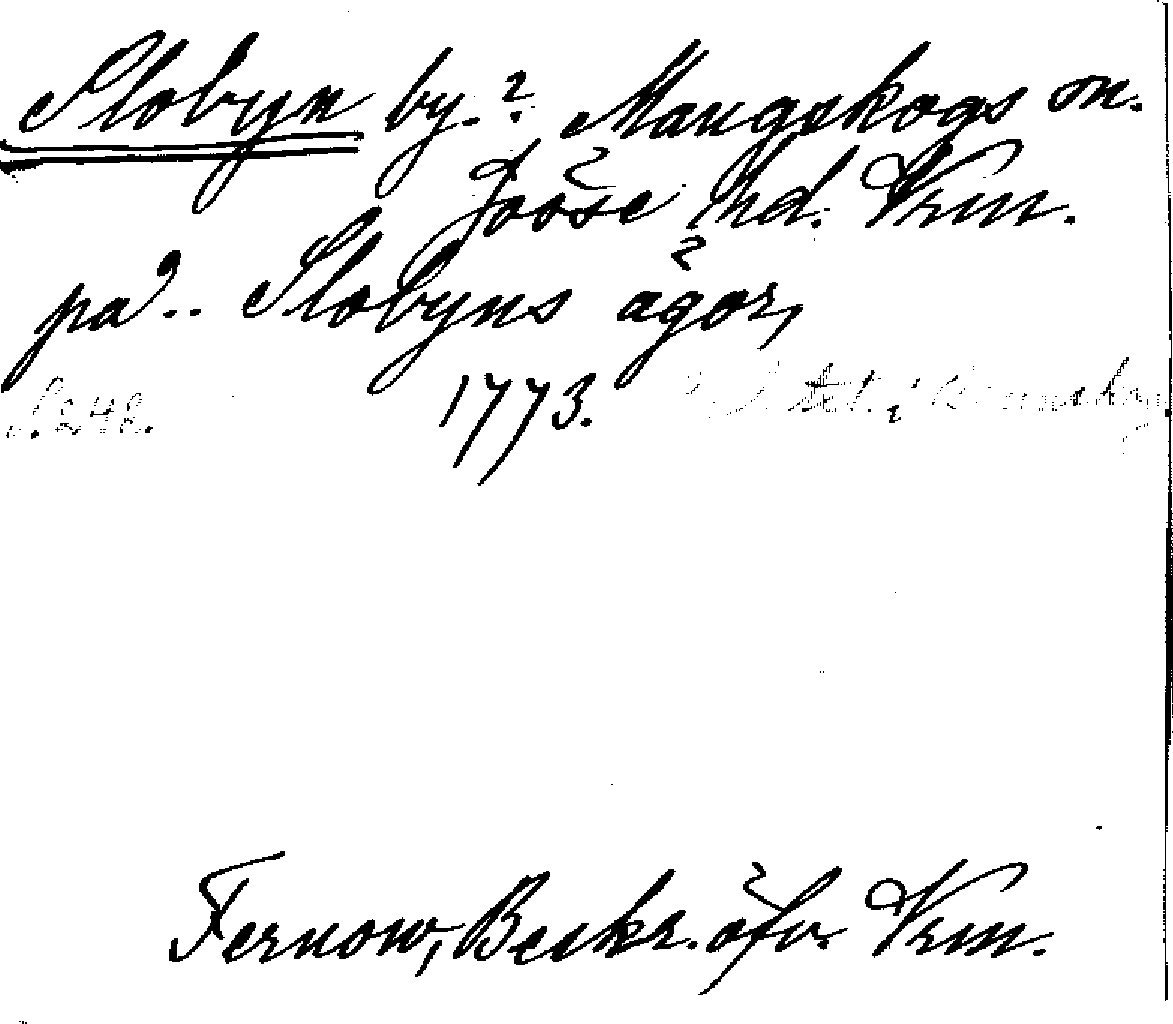 Slobyn by.? Mangskogs sn.
Jösse hd. Vrm.
på.. Slobyns ägor,
S. 248. 1773.
Fernow, Beskr. öfv. Vrm.